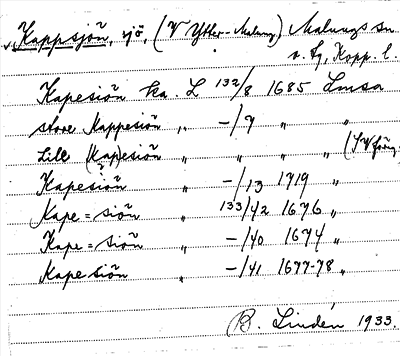 Kappsjön, sjö, (V Ytter-Malung) Malungs sn
v. tg, Kopp. l.
Kapesiön ka. L 132/8 1685 Lmsa
store Kappesiön " -/7 " "
Lill (Kap)esiön " " " " (SV förg.
Kapesiön " -/13 1719 "
Kape=siön " 133/42 1676 "
Kape=siön " -/40 1674 "
Kapesiön " -/41 1677-78 "
B. Lindén 1933.